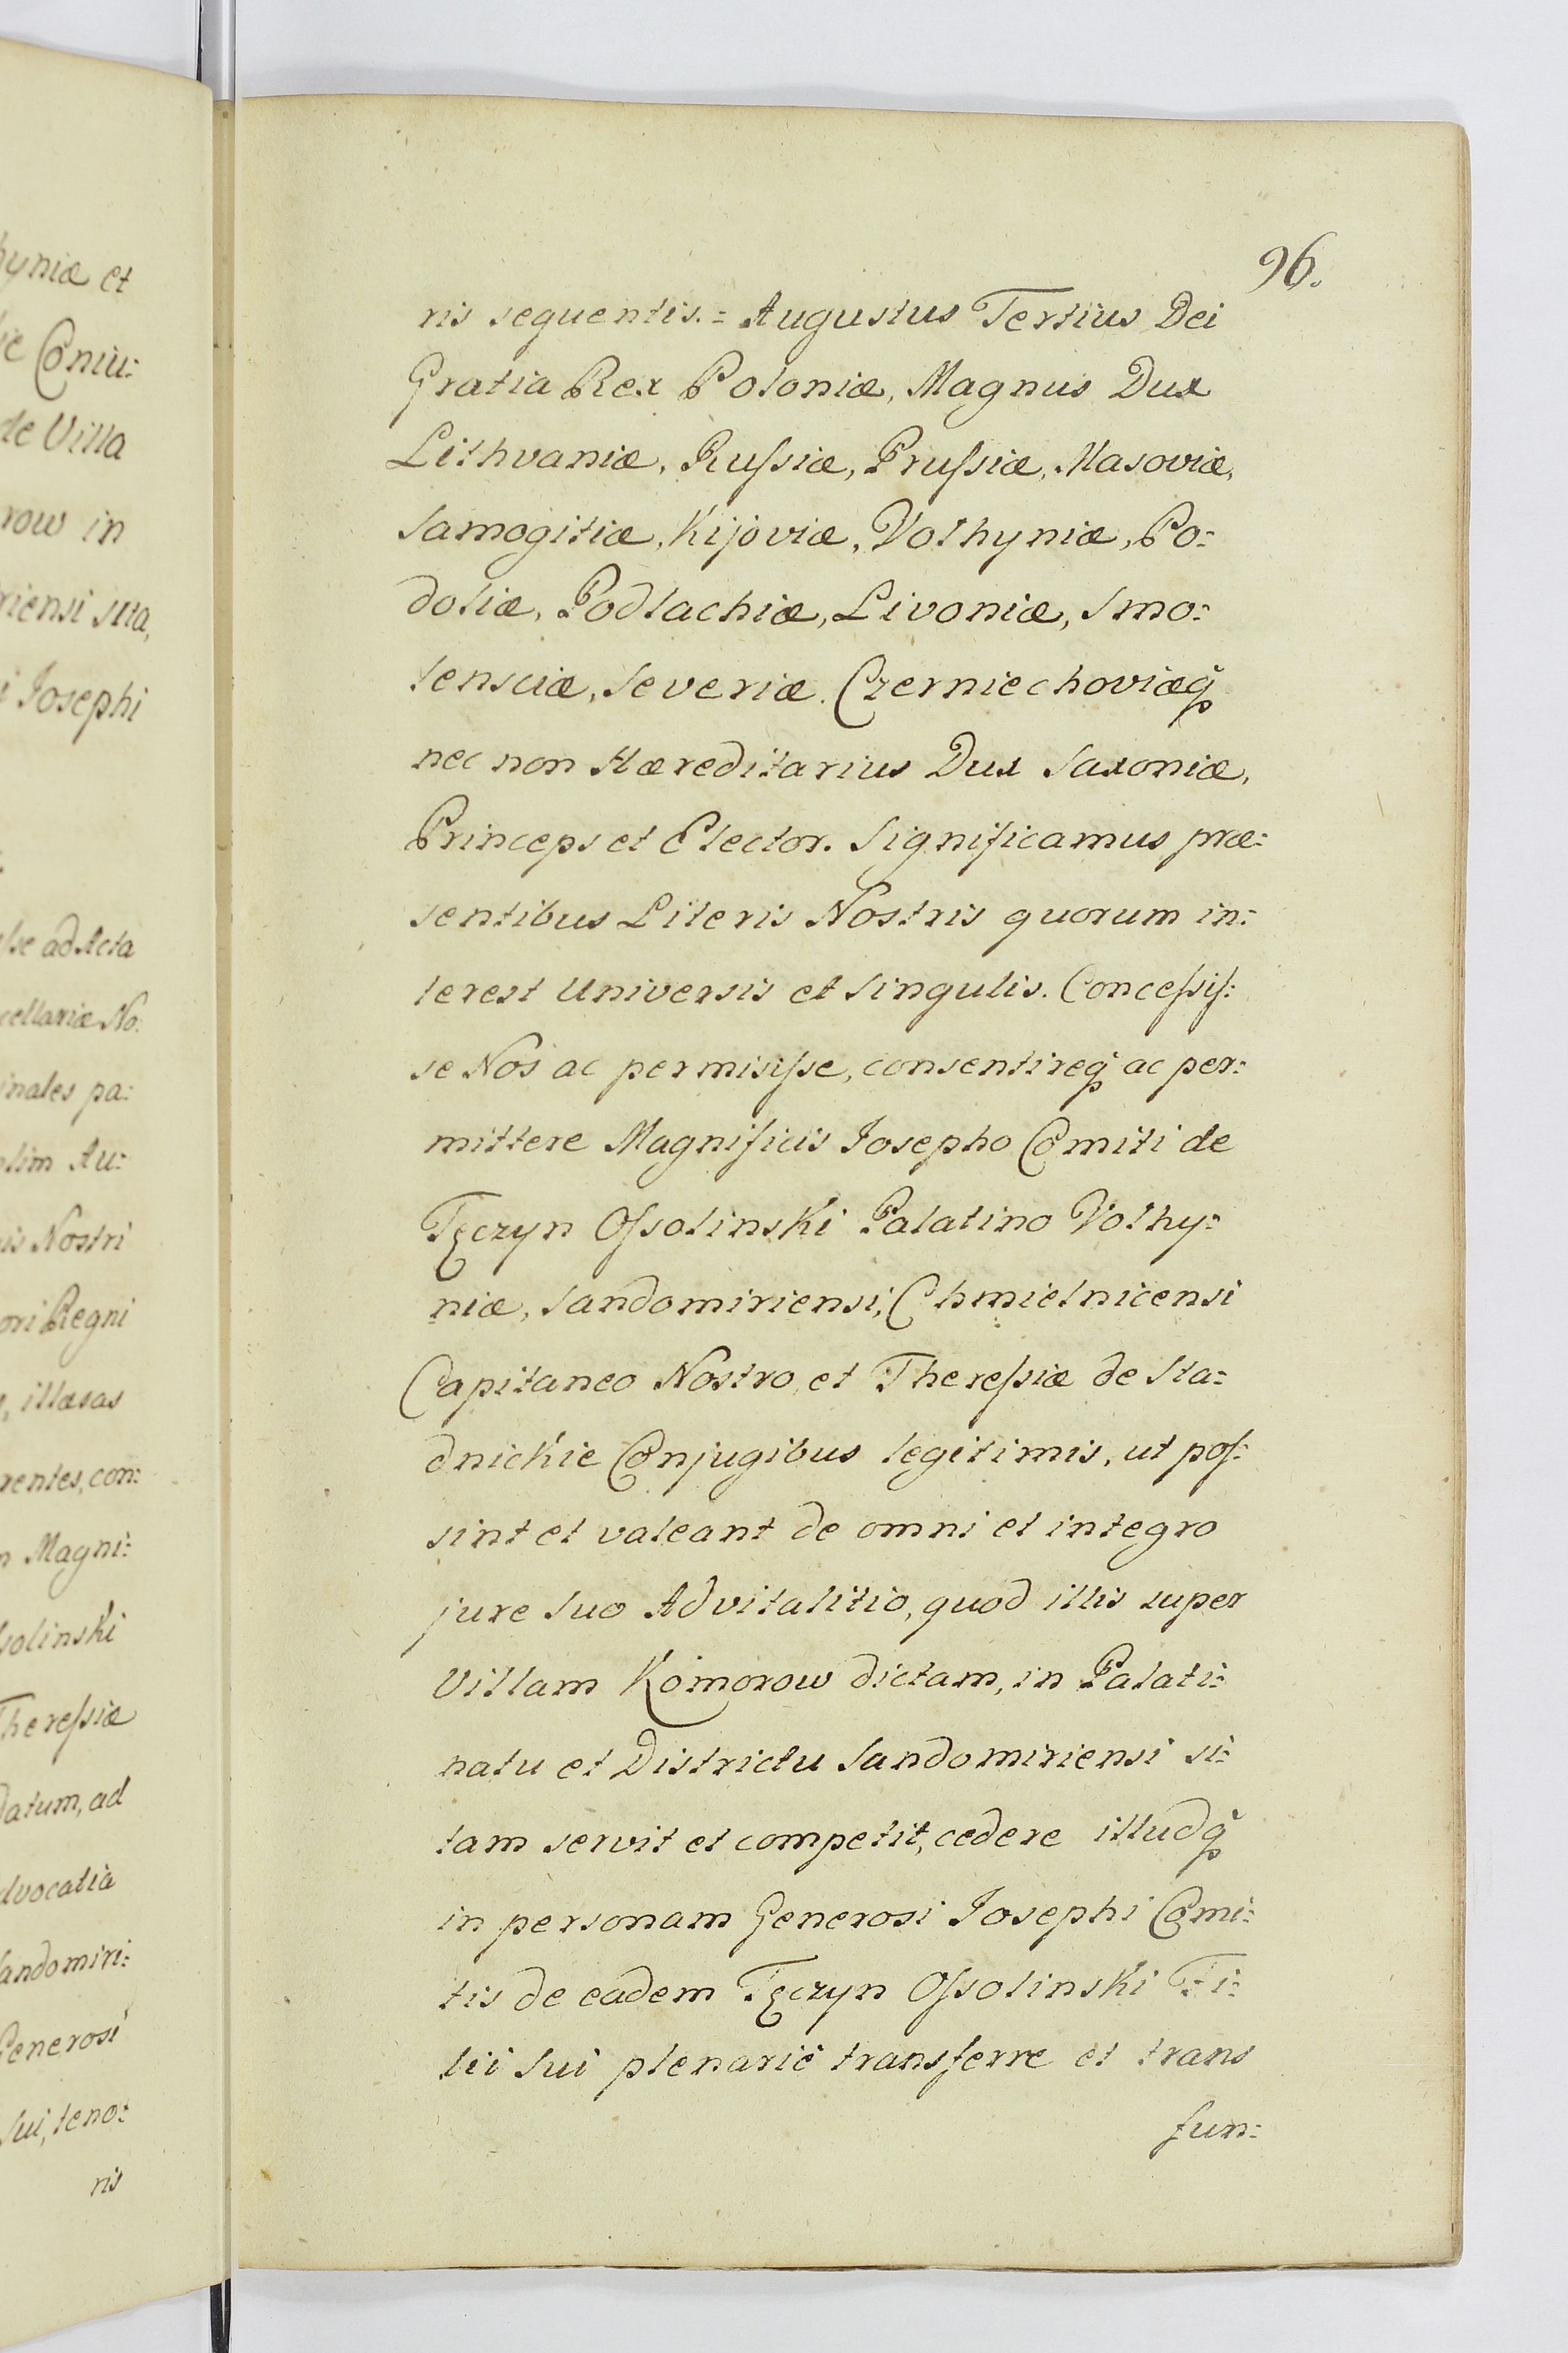 hyniæ et
ie Coniu:
de Villa
row in
riensi sita,
i Josephi
lse ad Acta
cellariæ No:
inales pa:
olim Au:
is Nostri
ori Regni
illæsas
rentes, con:
n Magni:
solinski
Theressiæ
datum, ad
dvocatia
andomiri:
Generosi
Sui, teno:
ris
96.
ris sequentis. = Augustus Tertius Dei
Gratia Rex Poloniæ, Magnus Dux
Lithvaniæ, Rußiæ, Prußiæ, Masoviæ,
Samogitiæ, Kijoviæ, Volhyniæ, Po:
doliæ, Podlachiæ, Livoniæ, Smo:
lensciæ, Severiæ, Czerniechoviæq̃
nec non Hæreditarius Dux Saxoniæ,
Princeps et Elector. Significamus præ:
sentibus Literis Nostris quorum in:
terest Universis et Singulis. Conceſsiſ:
se Nos ac permisiſse, consentireq̃ ac per:
mittere Magnificis Josepho Comiti de
Tęczyn Oſsolinski Palatino Volhy:
niæ, Sandomiriensi, Chmielnicensi
Capitaneo Nostro, et Thereſsiæ de Sta:
dnickie Conjugibus legitimis, ut poſ:
sint et valeant de omni et integro
jure Suo Advitalitio, quod illis super
Villam Komorow dictam, in Palati:
natu et Districtu Sandomiriensi si:
tam servit et competit, cedere illudq̃
in personam Generosi Josephi Comi:
tis de eadem Tęczyn Oſsolinski Fi:
lii Sui plenariè transferre et trans
fun: